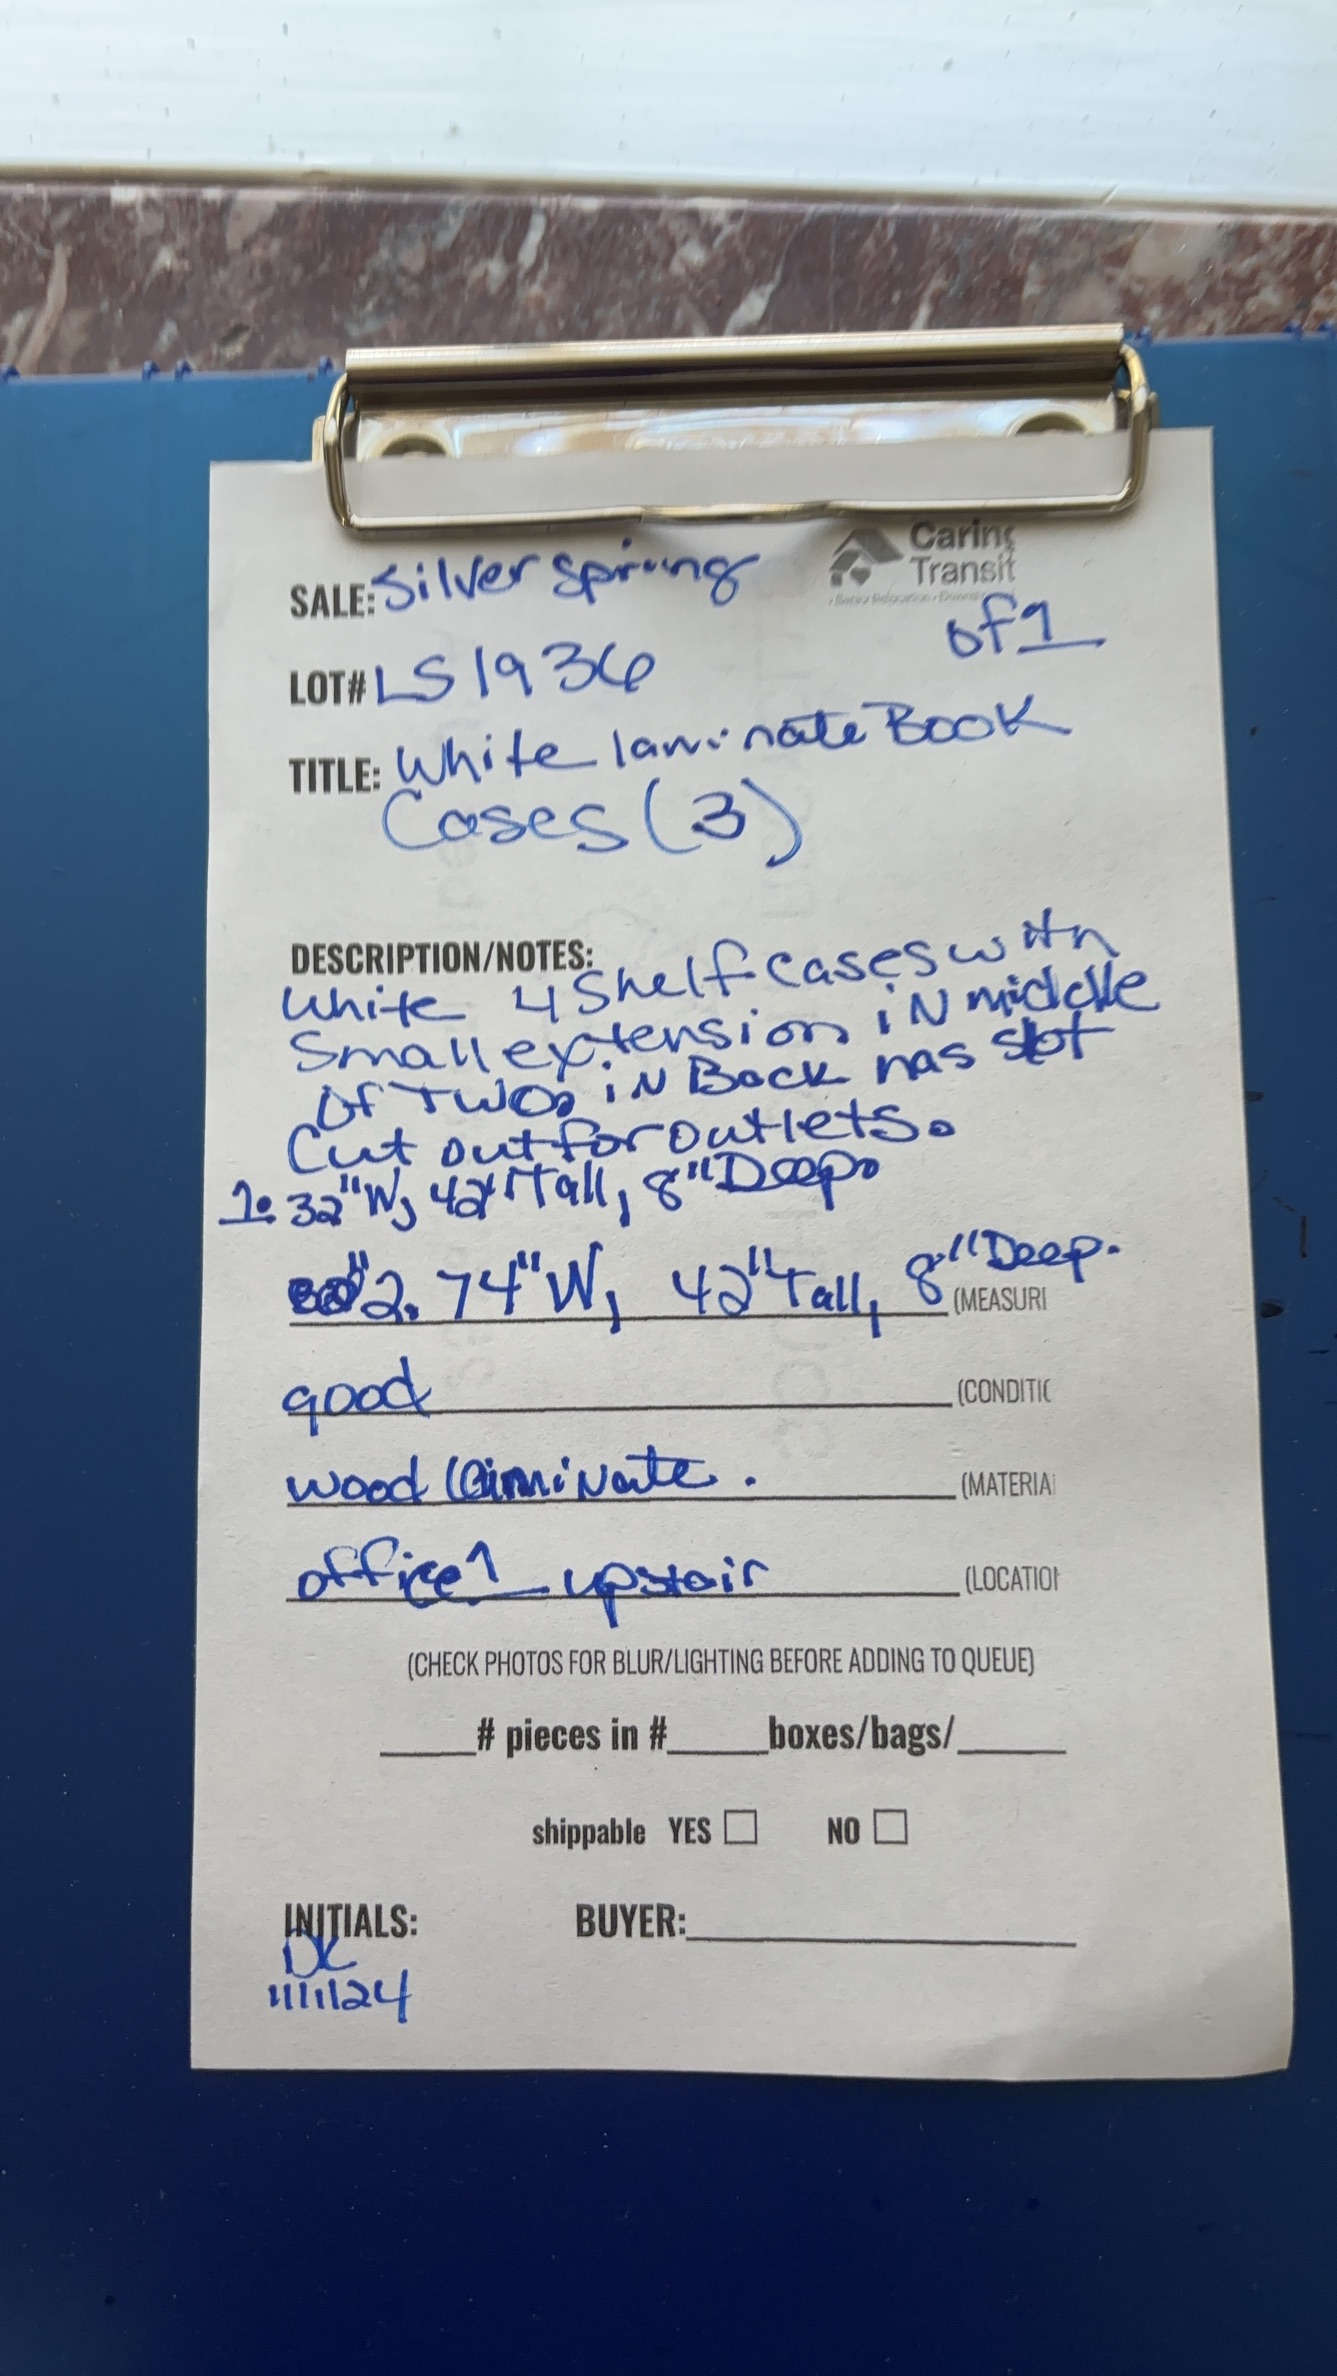 Caring
Transit
SALE: Silver spring
of 1
LOT# LS 1936
TITLE: White laminate Book
Cases (3)
DESCRIPTION/NOTES:
White 4 Shelf cases with
Small extension iN middle
of Two. iN Back has slot
Cut out for outlets.
1. 32"W, 42" Tall, 8" Deep.
2. 74"W, 42" Tall, 8" Deep.
(MEASURI
good (CONDITIC
wood laminate. (MATERIA
office 1 upstair (LOCATIOI
(CHECK PHOTOS FOR BLUR/LIGHTING BEFORE ADDING TO QUEUE)
# pieces in # boxes/bags/
shippable YES NO
INITIALS: BUYER:
DC
11/11/24